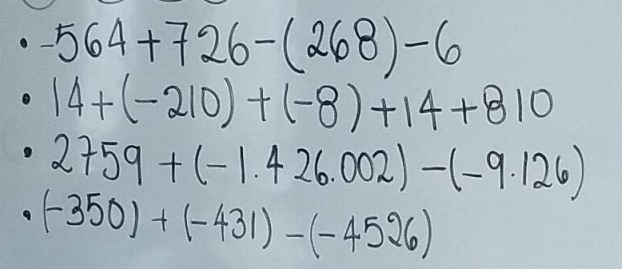 • -564+726-(268)-6
• 14+(-210)+(-8)+14+810
• 2759+(-1.426.002)-(-9.126)
• (-350)+(-431)-(-4526)